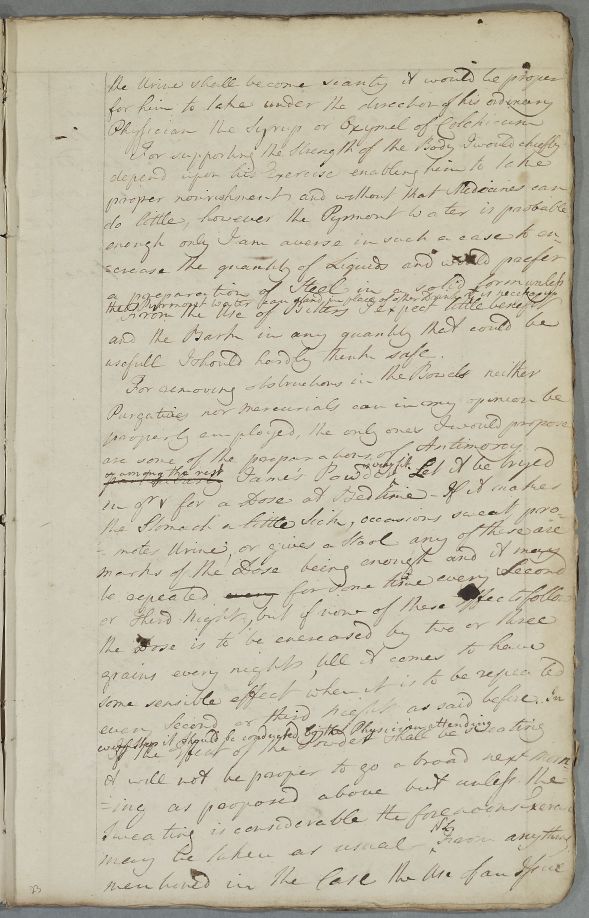 the Urine shall become scanty it would be proper
for him to take under the direction of his ordinary
Physician the Syrup or Oxymel of Colchicum
For supporting the Strength of the Body I would chiefly
depend upon his Exercise enabling him to take
proper nourishment and without that Medicines can
do little, however the Pyrmont Water is probable
enough only I am averse in such a case to en
=crease the quantity of Liquids and would prefer
a preparation of Steel in a solid form unless
the Pyrmont water can stand in place of other Drink that is necessary
From the Use of Bitters I expect little benefit
and the Bark in any quantity that could be
usefull I should hardly think safe.
For removing obstructions in the Bowels neither
Purgatives nor mercurials can in my opinion be
properly employed, the only ones I would propose
are some of the preparations of Antimony
or among the rest James's Powder Let it be tryed
in gr v for a Dose at Bedtime - If it makes
the Stomach a little Sick, occasions sweat, pro
=motes Urine, or gives a Stool any of these are
marks of the Dose being enough and it may
be repeated every for some time every Second
or third Night, but if none of these effects follow
the Dose is to be encreased by two or three
grains every night, till it comes to have
some sensible effect when it is to be repeated
every Second or third Night as said before. In
all steps it should be conducted by the Physician attending
If the effect of the Powder shall be Sweating
it will not be proper to go abroad next morn
=ing as proposed above but unless the
Sweating is considerable the forenoons Exercise
may be taken as usual From anything
mentioned in the Case the Use of an Issue